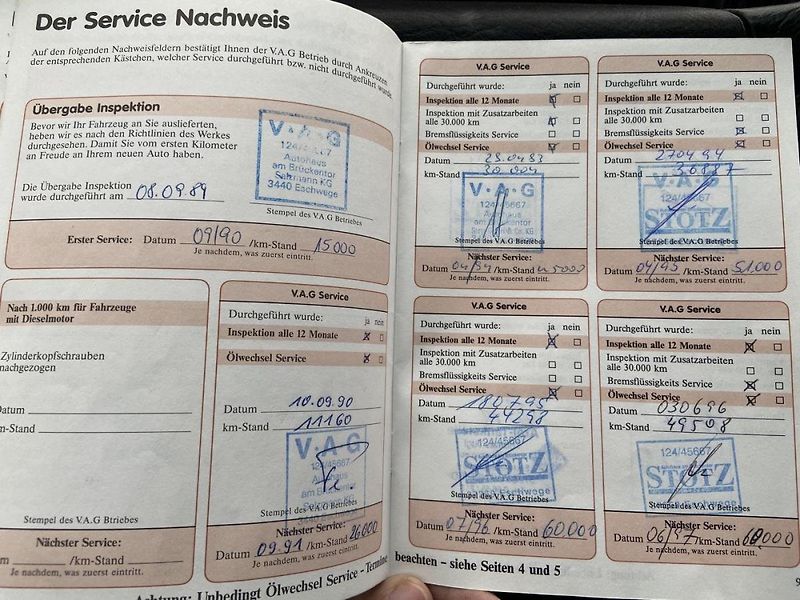 Der Service Nachweis
Auf den folgenden Nachweisfeldern bestätigt Ihnen der V.A.G Betrieb durch Ankreuzen
der entsprechenden Kästchen, welcher Service durchgeführt bzw. nicht durchgeführt wurde.
Übergabe Inspektion
Bevor wir Ihr Fahrzeug an Sie ausliefern,
haben wir es nach den Richtlinien des Werkes
durchgesehen. Damit Sie vom ersten Kilometer
an Freude an Ihrem neuen Auto haben.
Die Übergabe Inspektion
wurde durchgeführt am 08.09.89
V·A·G
124/45667
Autohaus
am Brückentor
Salzmann KG
3440 Eschwege
Stempel des V.A.G Betriebes
Erster Service: Datum 09/90 /km-Stand 15000
Je nachdem, was zuerst eintritt.
Nach 1.000 km für Fahrzeuge
mit Dieselmotor
Zylinderkopfschrauben
nachgezogen
Datum
km-Stand
Stempel des V.A.G Btriebes
Nächster Service:
/km-Stand
Je nachdem, was zuerst eintritt.
V.A.G Service
Durchgeführt wurde: ja nein
Inspektion alle 12 Monate
Ölwechsel Service
Datum 10.09.90
km-Stand 11160
V·A·G
124/45667
Autohaus
am Brückentor
Stempel des V.A.G Betriebes
Nächster Service:
Datum 09.91 /km-Stand 26000
Je nachdem, was zuerst eintritt.
Achtung: Unbedingt Ölwechsel Service - Termine
V.A.G Service
Durchgeführt wurde: ja nein
Inspektion alle 12 Monate
Inspektion mit Zusatzarbeiten
alle 30.000 km
Bremsflüssigkeits Service
Ölwechsel Service
Datum
km-Stand 30.004
V·A·G
124/45667
Stempel des V.A.G Betriebes
Nächster Service:
Datum 04/94 /km-Stand
Je nachdem, was zuerst eintritt.
V.A.G Service
Durchgeführt wurde: ja nein
Inspektion alle 12 Monate
Inspektion mit Zusatzarbeiten
alle 30.000 km
Bremsflüssigkeits Service
Ölwechsel Service
Datum 270494
km-Stand
V·A·G
124/45667
STOTZ
Stempel des V.A.G Betriebes
Nächster Service:
Datum 04/95 /km-Stand 51.000
Je nachdem, was zuerst eintritt.
V.A.G Service
Durchgeführt wurde: ja nein
Inspektion alle 12 Monate
Inspektion mit Zusatzarbeiten
alle 30.000 km
Bremsflüssigkeits Service
Ölwechsel Service
Datum 180795
km-Stand 44298
124/45667
STOTZ
Eschwege
Stempel des V.A.G Betriebes
Nächster Service:
Datum 07/96 /km-Stand 60.000
Je nachdem, was zuerst eintritt.
V.A.G Service
Durchgeführt wurde: ja nein
Inspektion alle 12 Monate
Inspektion mit Zusatzarbeiten
alle 30.000 km
Bremsflüssigkeits Service
Ölwechsel Service
Datum 030696
km-Stand 49508
124/45667
STOTZ
Stempel des V.A.G Betriebes
Nächster Service:
Datum 06/97 /km-Stand
Je nachdem, was zuerst eintritt.
beachten – siehe Seiten 4 und 5
9